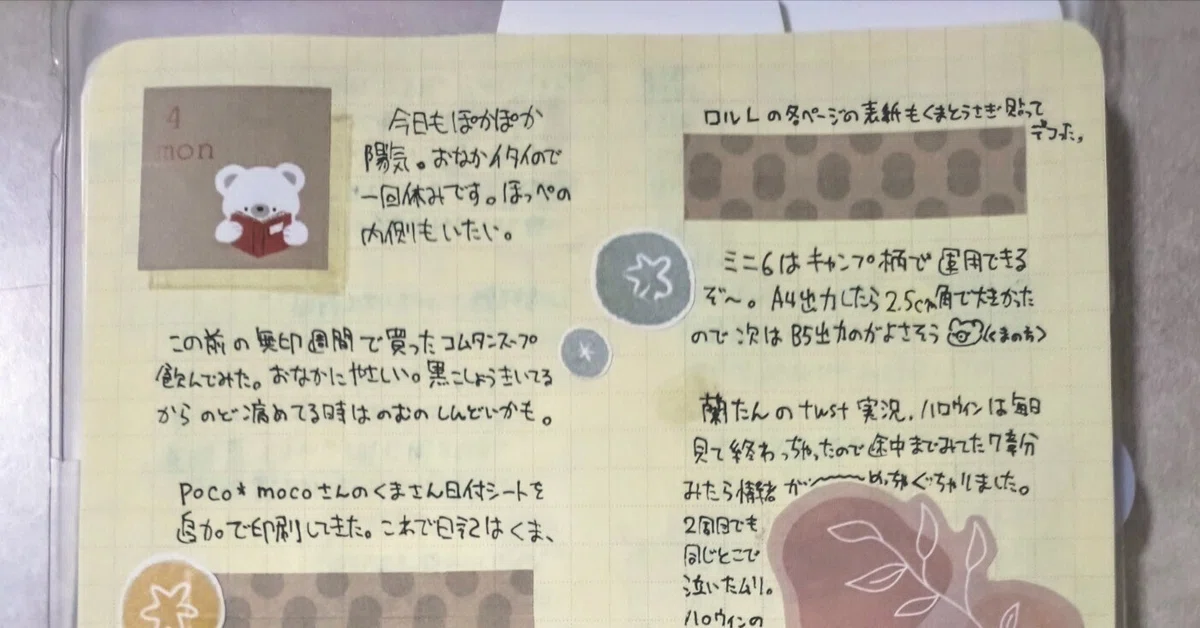 4
mon
今日もぽかぽか
陽気。おなかイタイので
一回休みです。ほっぺの
内側もいたい。
この前の無印週間で買ったコムタンスープ
飲んでみた。おなかにやさしい。黒こしょうきいてる
からのど痛めてる時はのむのしんどいかも。
poco*mocoさんのくまさん日付シートを
追加で印刷してきた。これで日記はくま、
ロルLの各ページの表紙もくまとうさぎ貼って
デコった。
ミニ6はキャンプ柄で運用できる
ぞ〜。A4出力したら2.5cm角で大きかった
ので次はB5出力のがよさそう
蘭たんのtwst実況、ハロウィンは毎日
見て終わっちゃったので途中までみてた7章分
みたら情緒が〜めちゃぐちゃりました。
2周目でも
同じとこで
泣いたムリ。
ハロウィンの